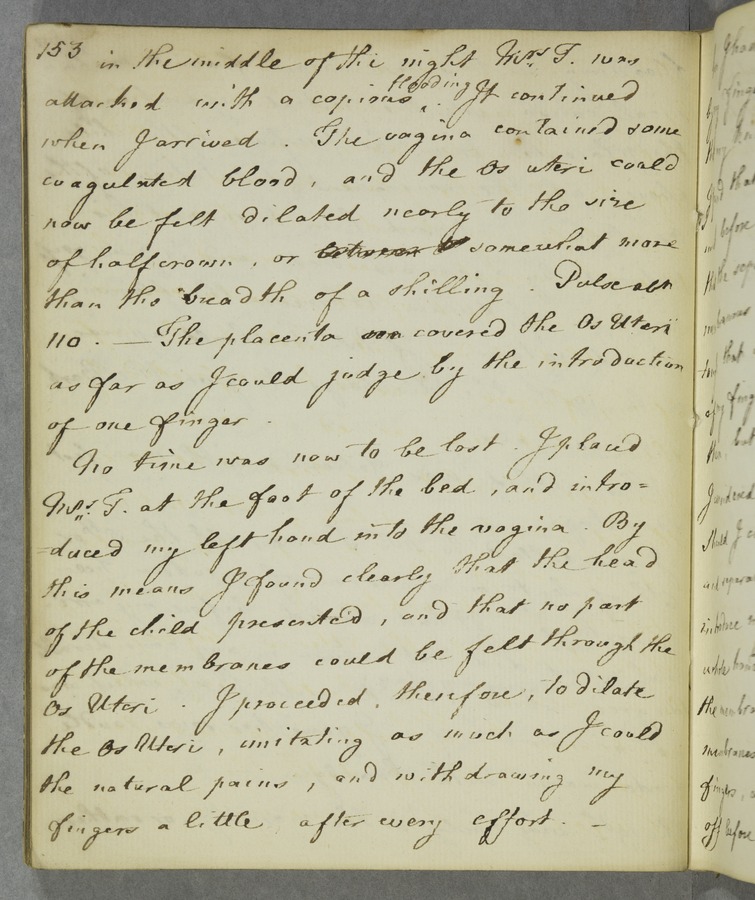 153 in the middle of the night Mrs. T. was
attacked with a copious flooding. It continued
when I arrived. The vagina contained some
coagulated blood, and the Os uteri could
now be felt dilated nearly to the size
of halfcrown, or between somewhat more
than the breadth of a shilling. Pulse abt
110. — The placenta covered the Os Uteri
as far as I could judge by the introduction
of one finger.
No time was now to be lost. I placed
Mrs. T. at the foot of the bed, and intro=
=duced my left hand into the vagina. By
this means I found clearly that the head
of the child presented, and that no part
of the membranes could be felt through the
Os Uteri. I proceeded, therefore, to dilate
the Os Uteri, imitating as much as I could
the natural pains, and withdrawing my
fingers a little after every effort. —